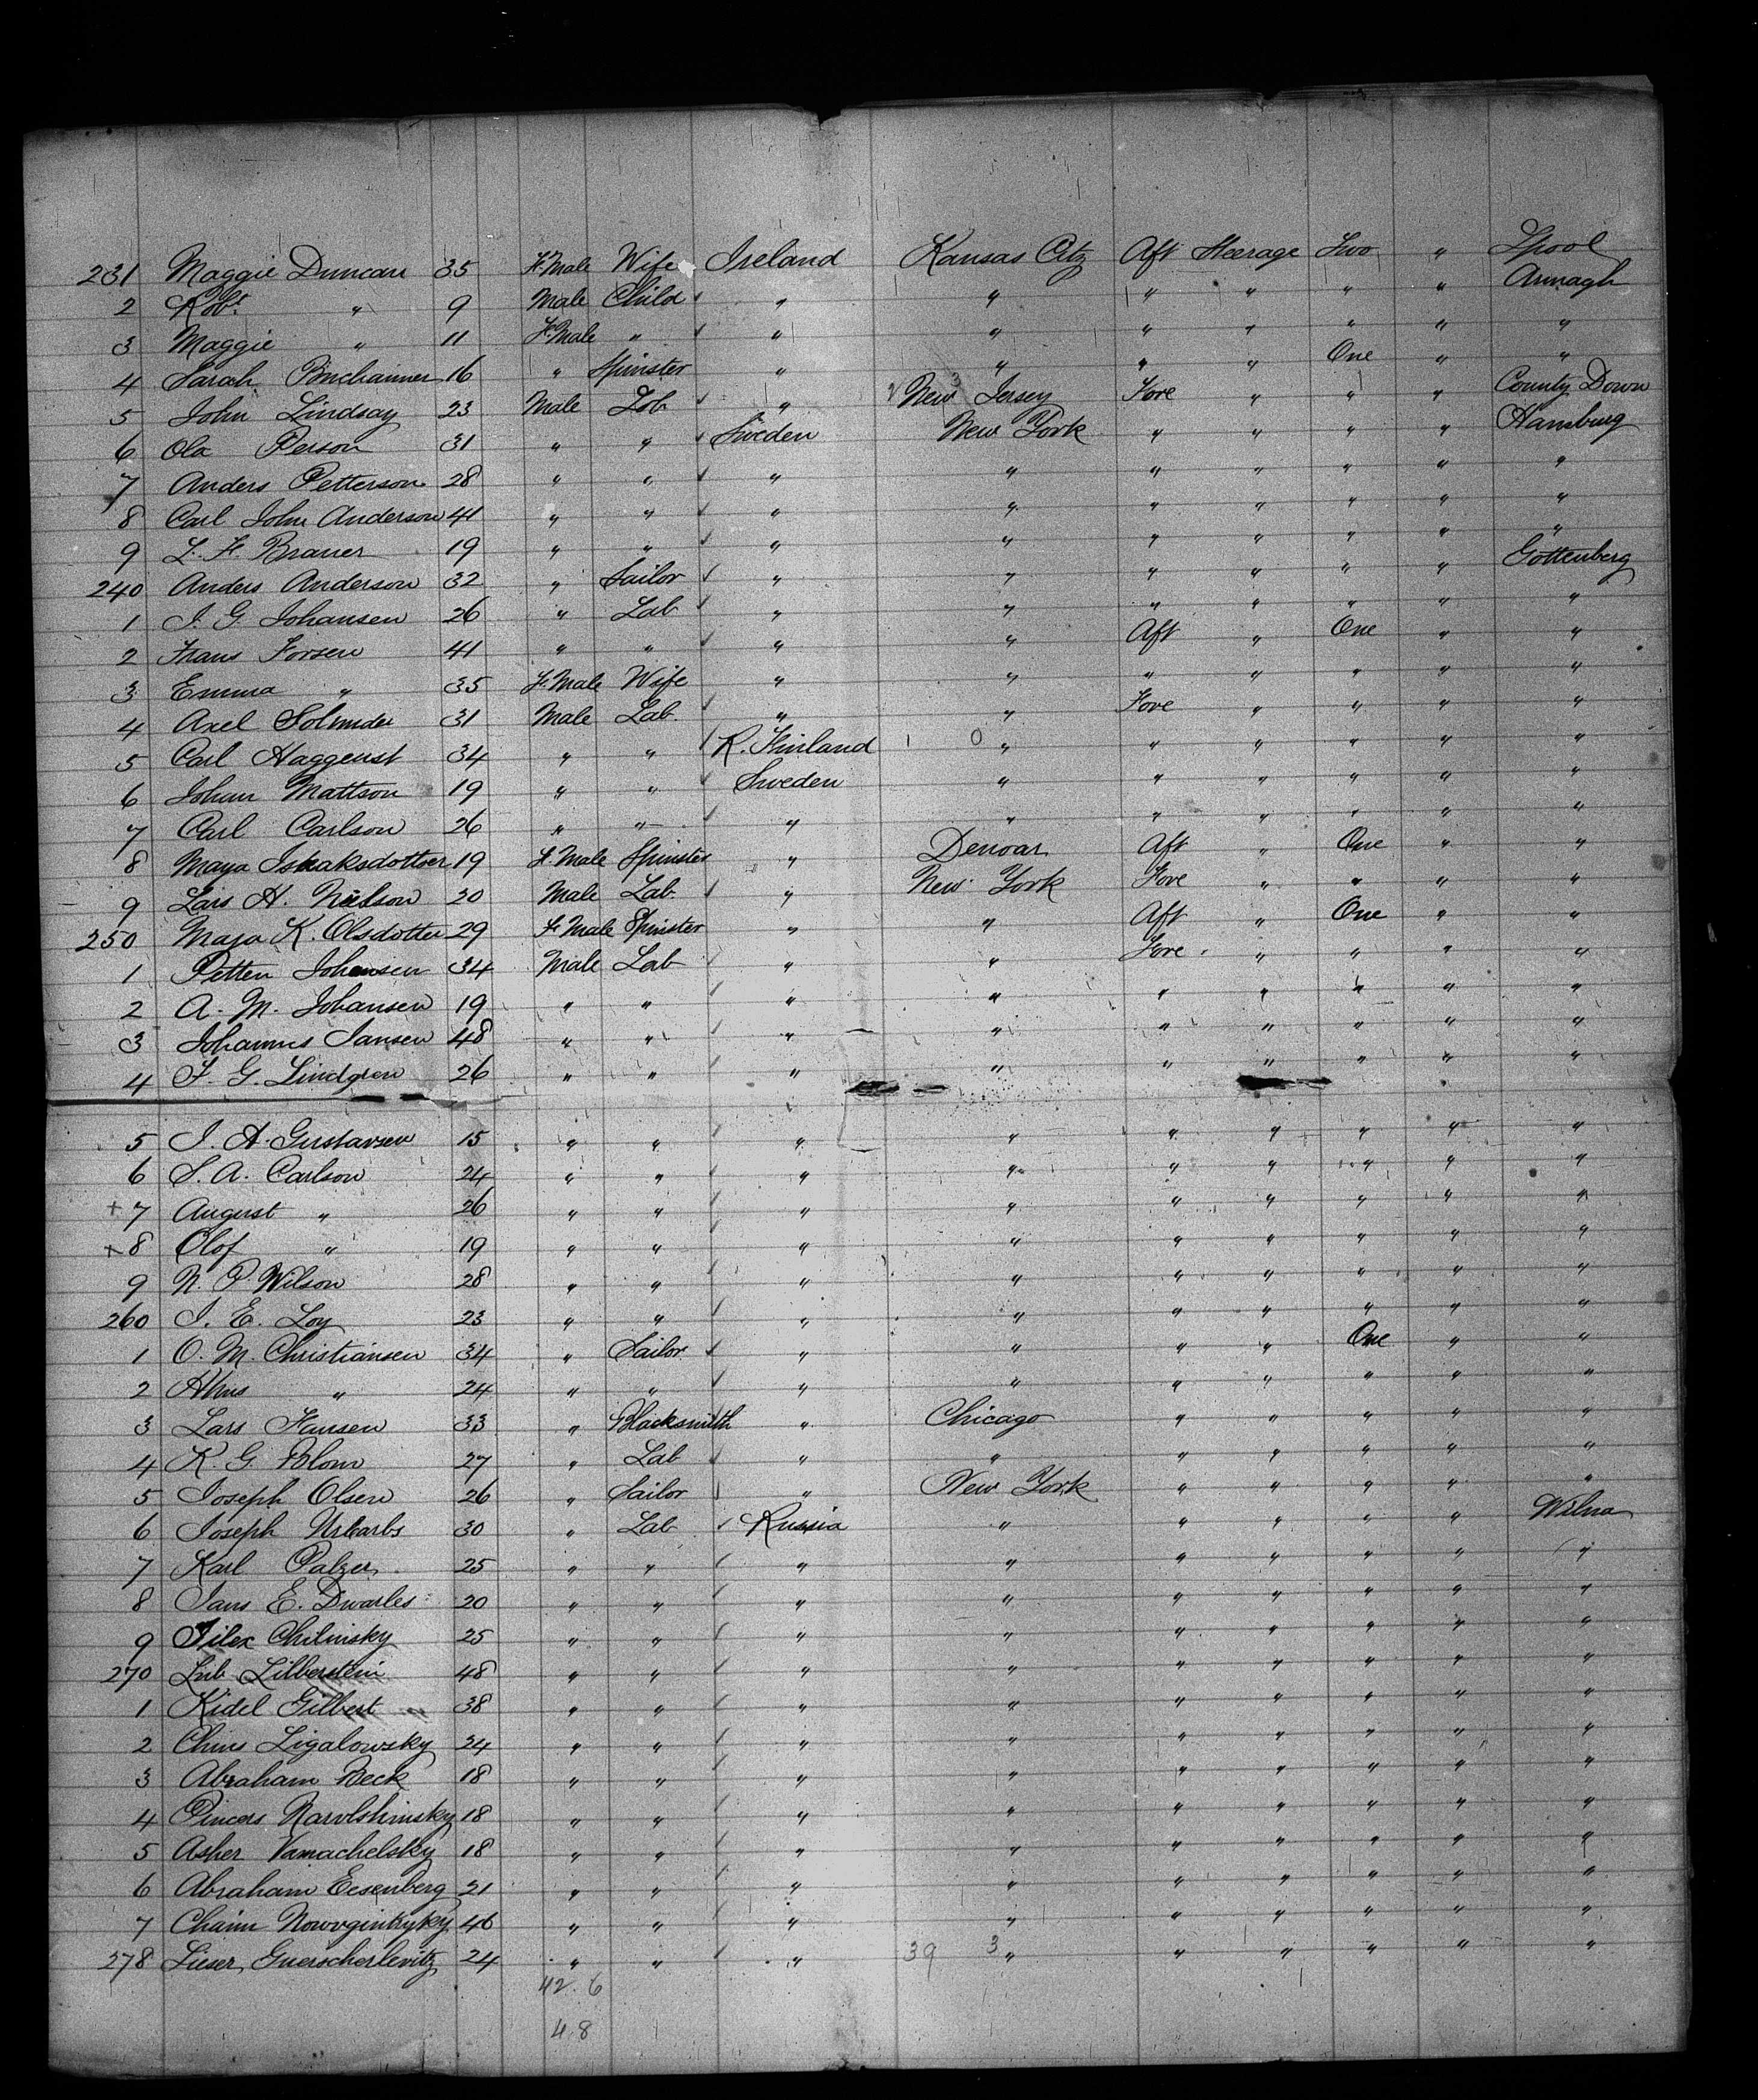 231 Maggie Duncan 35 F. Male Wife Ireland Kansas City Aft Steerage Two " Lpool
2 Robt. " 9 Male Child " " " " " " Armagh
3 Maggie " 11 F. Male " " " " " " " "
4 Sarah 16 " Spinster " " " " One " "
5 John Lindsay 23 Male Lab " New Jersey 3 Fore " " " County Down
6 Ola Person 31 " " Sweden New York " " " " Hamburg
7 Anders Petterson 28 " " " " " " " " "
8 Carl John Anderson 41 " " " " " " " " "
9 L. F. Braner 19 " " " " " " " " "
240 Anders Anderson 32 " Sailor " " " " " " Gottenberg
1 J. G. Johansen 26 " Lab " " " " " " "
2 Frans Forsen 41 " " " " Aft " One " "
3 Emma " 35 F. Male Wife " " " " " " "
4 Axel 31 Male Lab. " " Fore " " " "
5 Carl Haggenst 34 " " R. Finland 1 0 " " " " " "
6 Johan Mattson 19 " " Sweden " " " " " "
7 Carl Carlson 26 " " " " " " " " "
8 Maya Isnaksdotter 19 F. Male Spinster " Denvar Aft " One " "
9 Lars A. Nielson 20 Male Lab. " New York Fore " " " "
250 Maja K. Olsdotter 29 F. Male Spinster " " Aft " One " "
1 Petter Johansen 34 Male Lab " " Fore " " " "
2 A. M. Johansen 19 " " " " " " " " "
3 Johannes Jansen 48 " " " " " " " " "
4 F. G. Lindgren 26 " " " " " " " " "
5 J. A. Gustavsen 15 " " " " " " " " "
6 S. A. Carlson 24 " " " " " " " " "
+ 7 August " 26 " " " " " " " " "
+ 8 Olof " 19 " " " " " " " " "
9 N. P. Wilson 28 " " " " " " " " "
260 J. E. Loy 23 " " " " " " " " "
1 O. M. Christiansen 34 " Sailor " " " " One " "
2 " 24 " " " " " " " " "
3 Lars Hansen 33 " Blacksmith " Chicago " " " " "
4 K. G. Blom 27 " Lab " " " " " " "
5 Joseph Olsen 26 " Sailor " New York " " " " "
6 Joseph Urbarbs 30 " Lab Russia " " " " " Wilna
7 Karl Palzer 25 " " " " " " " " "
8 Jans E. Dwarles 20 " " " " " " " " "
9 Chilinsky 25 " " " " " " " " "
270 Lub Lilberstein 48 " " " " " " " " "
1 Kidel Gilbert 38 " " " " " " " " "
2 Chws Ligalowsky 24 " " " " " " " " "
3 Abraham Beck 18 " " " " " " " " "
4 Pincers Narolshinsky 18 " " " " " " " " "
5 Asher Vamachelsky 18 " " " " " " " " "
6 Abraham Eesenberg 21 " " " " " " " " "
7 Chaim Nowogintzyky 46 " " " " " " " " "
278 Lieser Guerscherlevitz 24 " " " 39 3 " " " " " "
42. 6
48